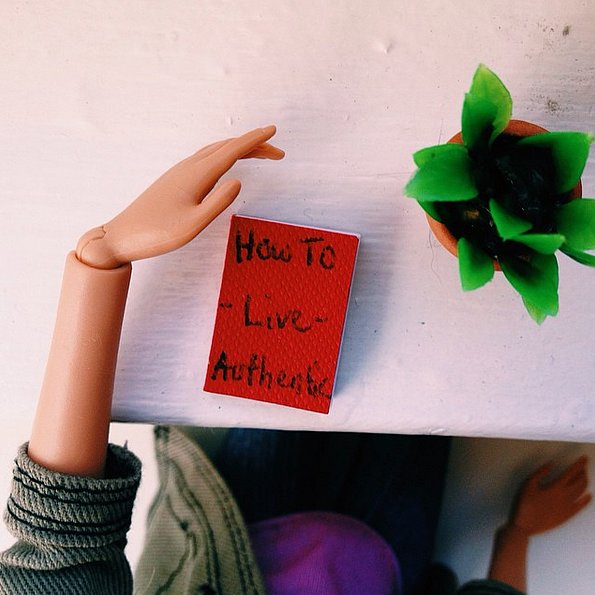 How To
-Live-
Authentic